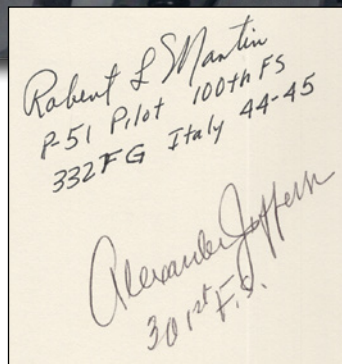 Robert L Martin
P-51 Pilot 100th FS
332FG Italy 44-45
Alexander Jefferson
301st F.S.